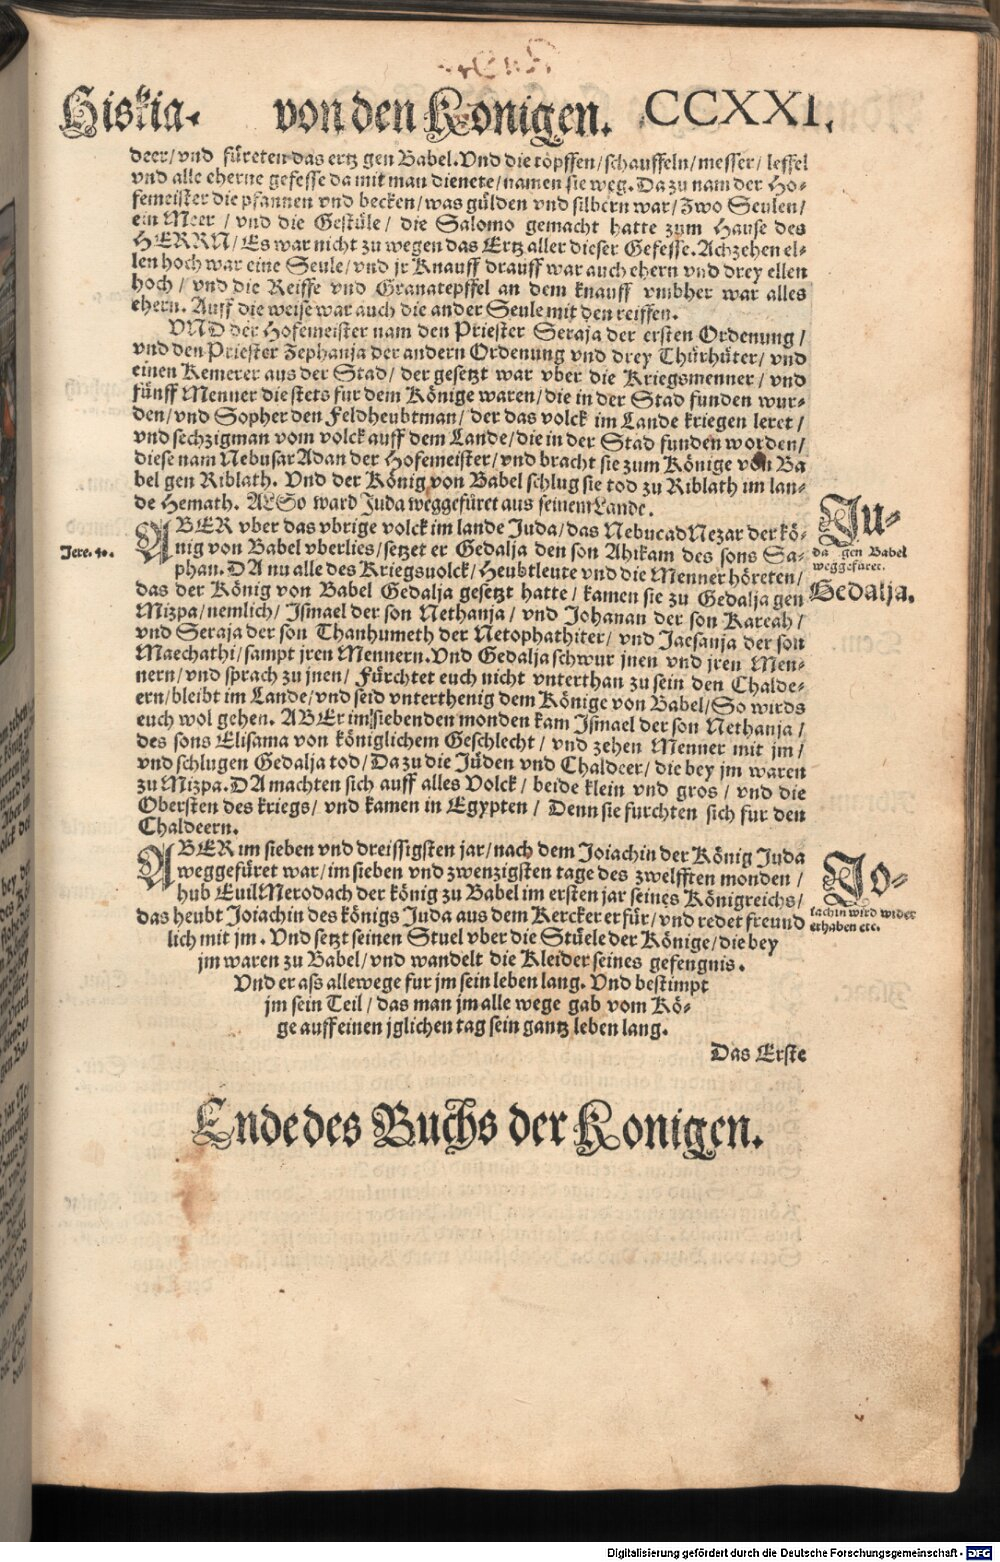 Hiskia. von den Konigen. CCXXI.
deer/vnd füreten das ertz gen Babel. Vnd die töpffen/schauffeln/messer/leffel
vnd alle eherne gefesse da mit man dienete/namen sie weg. Da zu nam der Ho-
femeister die pfannen vnd becken/was gülden vnd silbern war/Zwo Seulen/
ein Meer/vnd die Gestüle/die Salomo gemacht hatte zum Hause des
HERRN/Es war nicht zu wegen das Ertz aller dieser Gefesse. Achzehen el-
len hoch war eine Seule/vnd jr Knauff drauff war auch ehern vnd drey ellen
hoch/vnd die Reiffe vnd Granatepffel an dem knauff vmbher war alles
ehern. Auff die weise war auch die ander Seule mit den reiffen.
VND der Hofemeister nam den Priester Seraja der ersten Ordenung/
vnd den Priester Zephanja der andern Ordenung vnd drey Thürhüter/vnd
einen Kemerer aus der Stad/der gesetzt war vber die Kriegsmenner/vnd
fünff Menner die stets fur dem Könige waren/die in der Stad funden wur-
den/vnd Sopher den Feldheubtman/der das volck im Lande kriegen leret/
vnd sechzig man vom volck auff dem Lande/die in der Stad funden worden/
diese nam NebusarAdan der Hofemeister/vnd bracht sie zum Könige von Ba
bel gen Riblath. Vnd der König von Babel schlug sie tod zu Riblath im lan-
de Hemath. ALSo ward Juda weggefüret aus seinem Lande.
Ju-
da gen Babel
weggefüret.
ABER vber das vbrige volck im lande Juda/das NebucadNezar der kö-
Jere. 40.
nig von Babel vberlies/setzet er Gedalja den son Ahikam des sons Sa-
phan. DA nu alle des Kriegsuolck/Heubtleute vnd die Menner höreten/
Gedalja.
das der König von Babel Gedalja gesetzt hatte/kamen sie zu Gedalja gen
Mizpa/nemlich/Ismael der son Nethanja/vnd Johanan der son Kareah/
vnd Seraja der son Thanhumeth der Netophathiter/vnd Jaesanja der son
Maechathi/sampt jren Mennern. Vnd Gedalja schwur jnen vnd jren Men-
nern/vnd sprach zu jnen/Fürchtet euch nicht vnterthan zu sein den Chalde-
ern/bleibt im Lande/vnd seid vnterthenig dem Könige von Babel/So wirds
euch wol gehen. ABEr im siebenden monden kam Ismael der son Nethanja/
des sons Elisama von königlichem Geschlecht/vnd zehen Menner mit jm/
vnd schlugen Gedalja tod/Da zu die Jüden vnd Chaldeer/die bey jm waren
zu Mizpa. DA machten sich auff alles Volck/beide klein vnd gros/vnd die
Obersten des kriegs/vnd kamen in Egypten/Denn sie furchten sich fur den
Chaldeern.
ABER im sieben vnd dreissigsten jar/nach dem Joiachin der König Juda
weggefüret war/im sieben vnd zwenzigsten tage des zwelfften monden/
Jo-
iachin wird wider
erhaben etc.
hub EuilMerodach der könig zu Babel im ersten jar seines Königreichs/
das heubt Joiachin des königs Juda aus dem Kercker er für/vnd redet freund
lich mit jm. Vnd setzt seinen Stuel vber die Stüele der Könige/die bey
jm waren zu Babel/vnd wandelt die Kleider seines gefengnis.
Vnd er ass allewege fur jm sein leben lang. Vnd bestimpt
jm sein Teil/das man jm alle wege gab vom Kö-
ge auff einen jglichen tag sein gantz leben lang.
Das Erste
Ende des Buchs der Konigen.
Digitalisierung gefördert durch die Deutsche Forschungsgemeinschaft - DFG